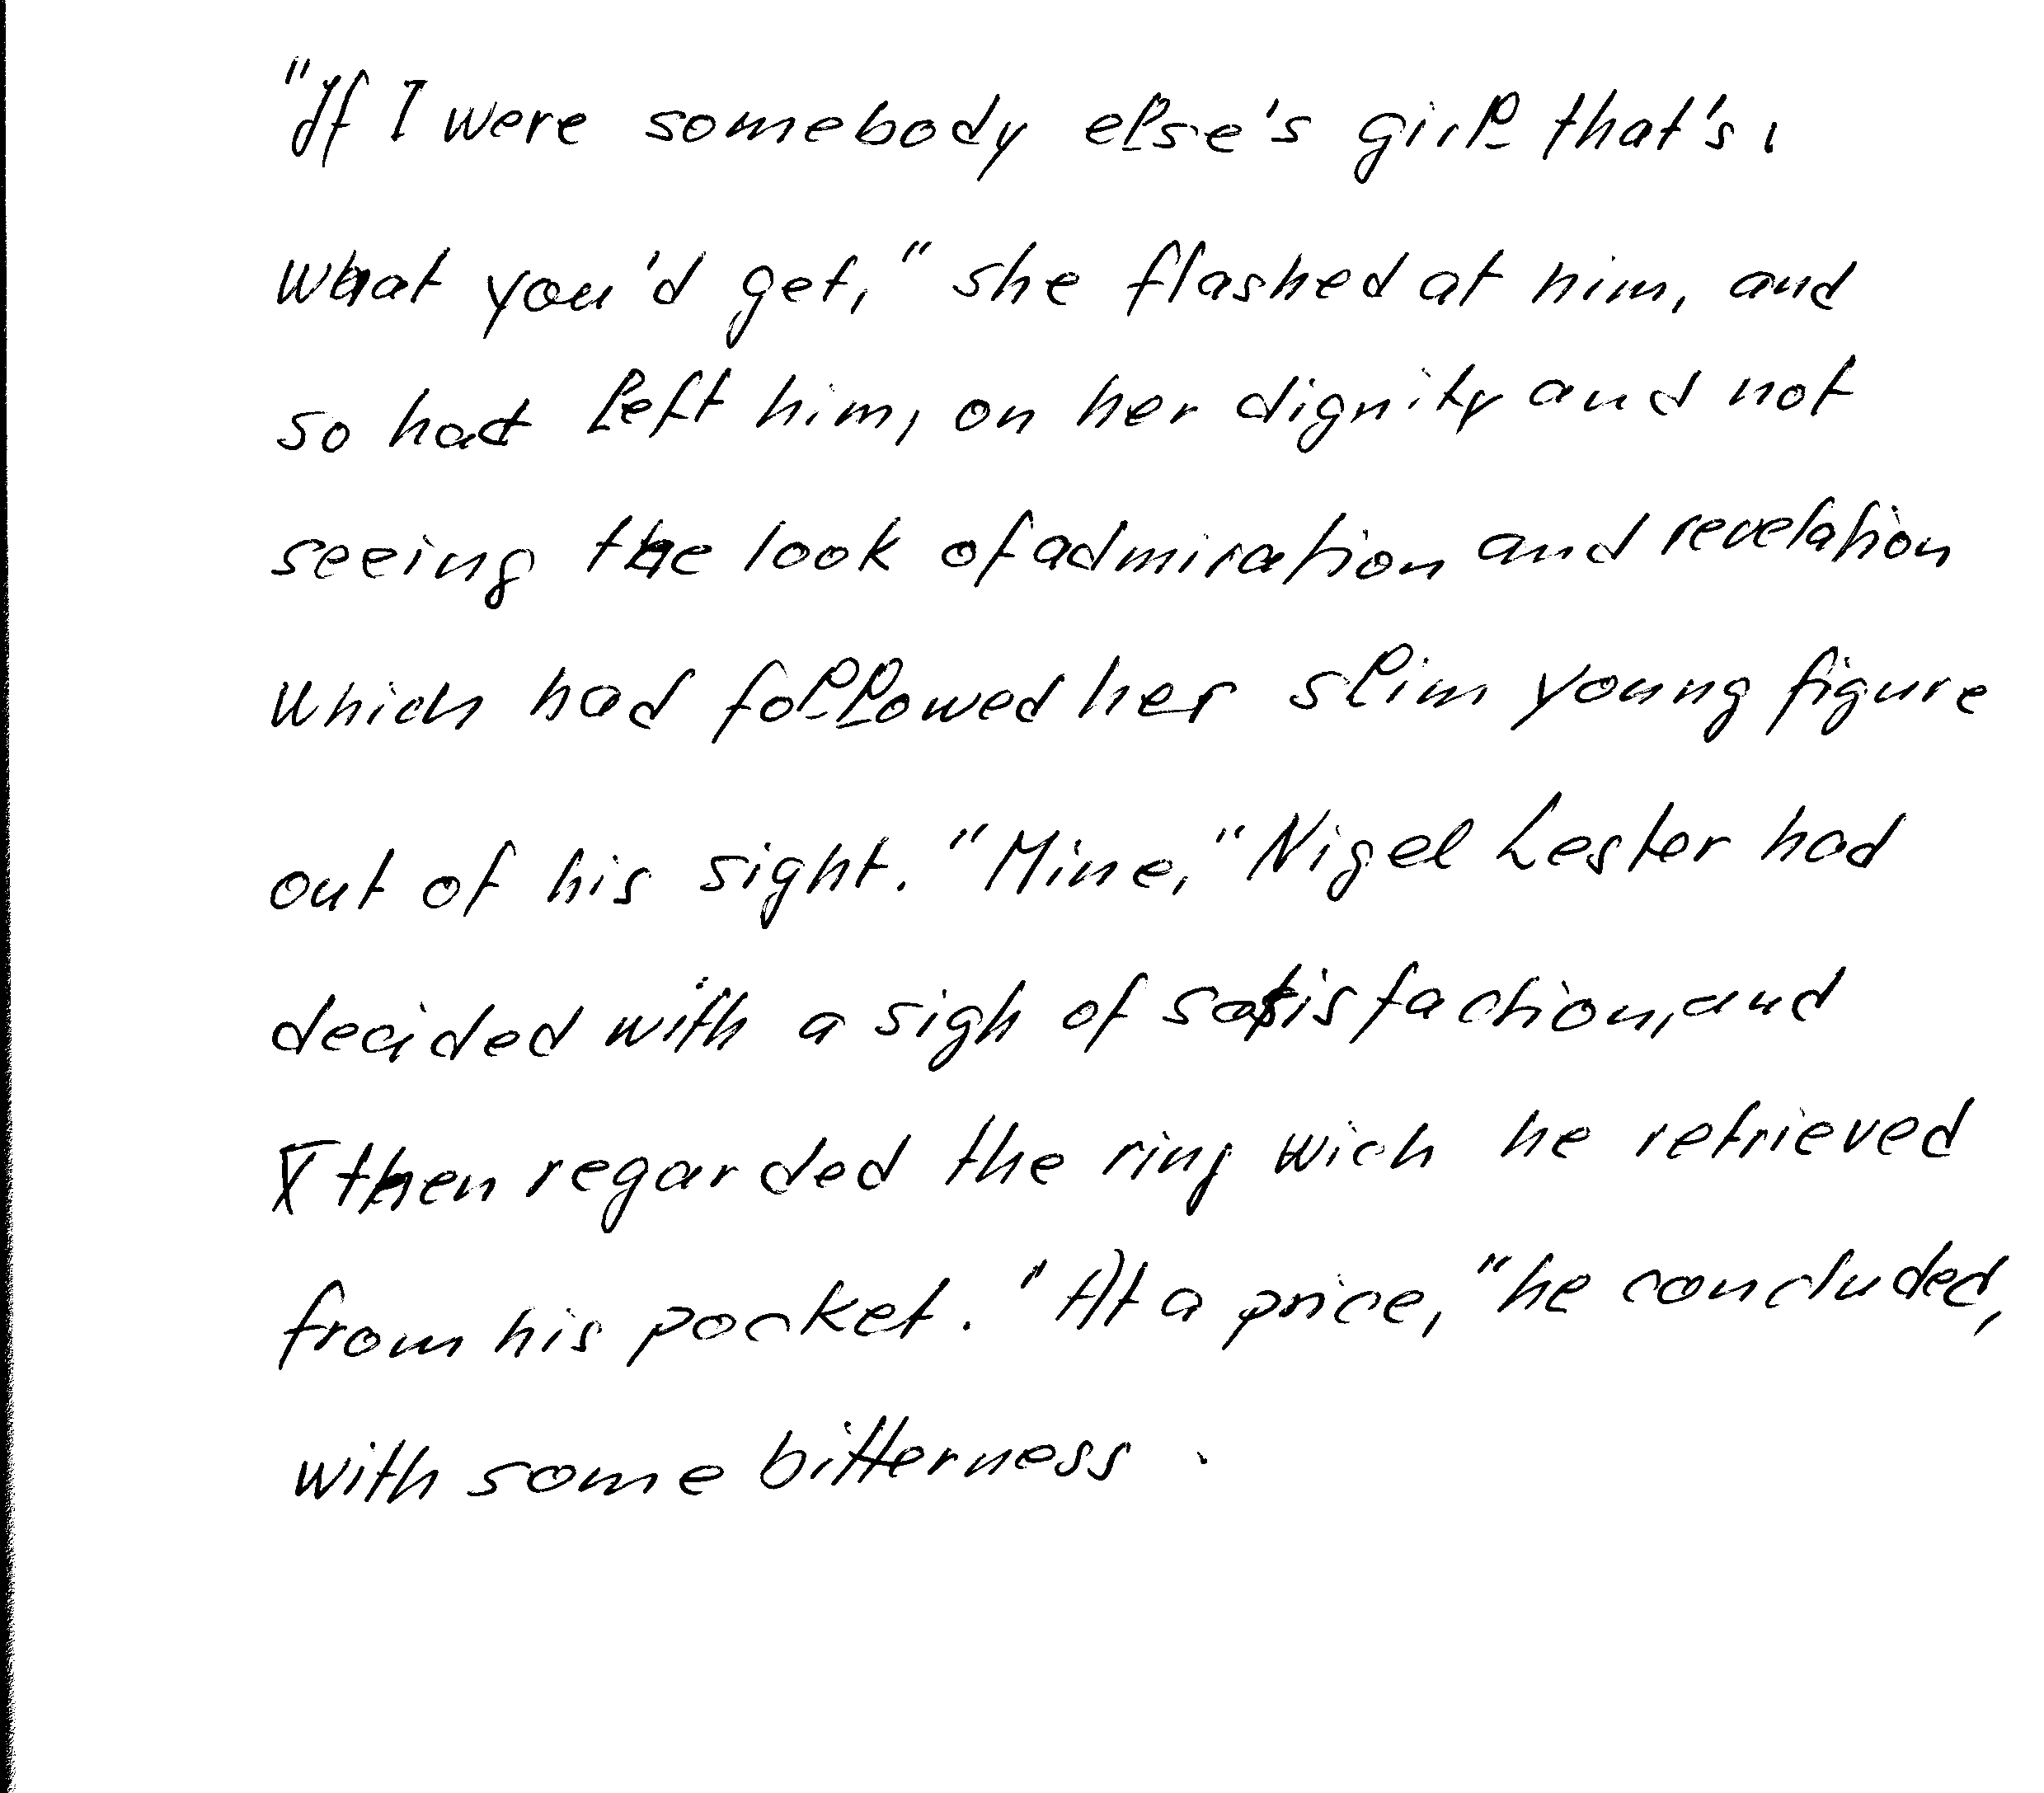 "If I were somebody else's girl that's
what you'd get," she flashed at him, and
so had left him, on her dignity and not
seeing the look of admiration and revelation
which had followed her slim young figure
out of his sight. "Mine," Nigel Lester had
decided with a sigh of satisfaction, and
then regarded the ring wich he retrieved
from his pocket. "At a price," he concluded,
with some bitterness.